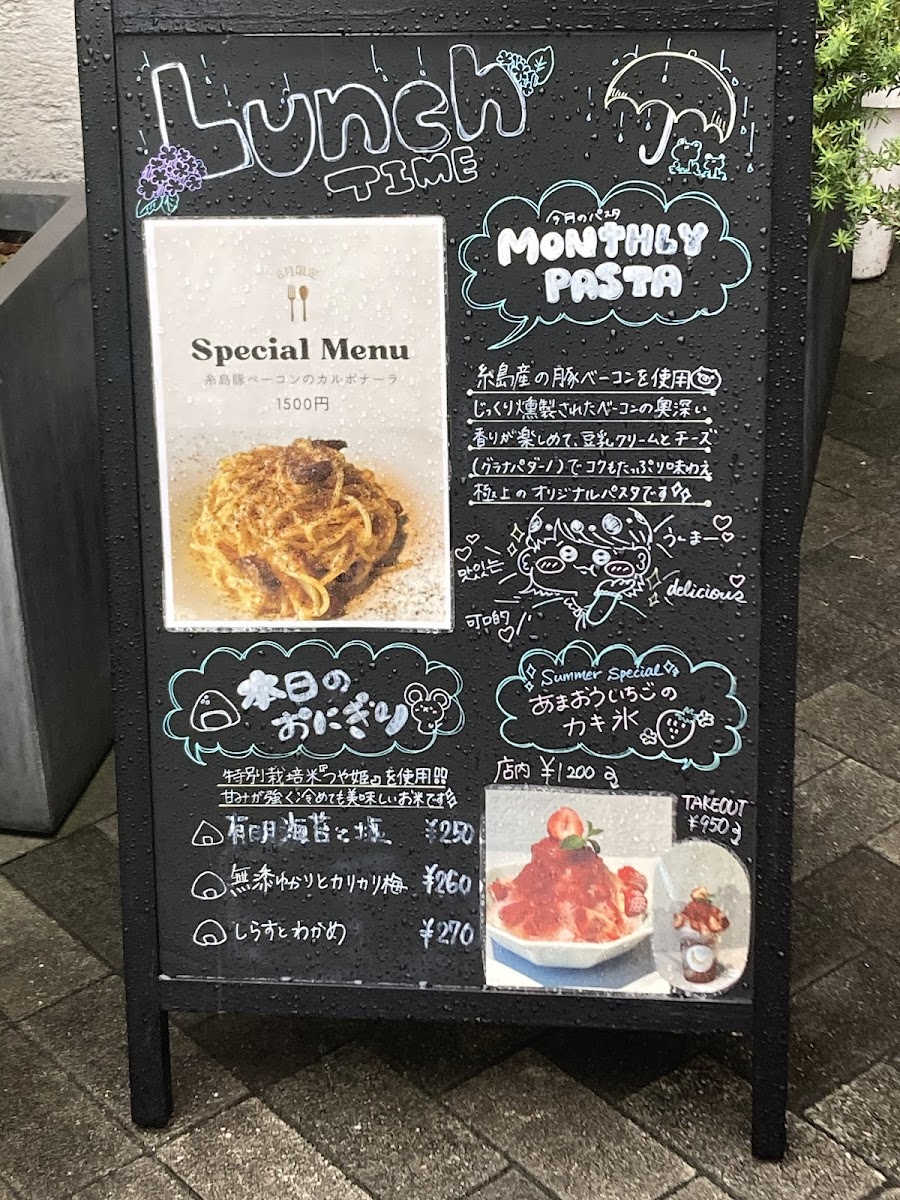 Lunch
TIME
今月のパスタ
MONTHLY
PASTA
6月限定
Special Menu
糸島豚ベーコンのカルボナーラ
1500円
糸島産の豚ベーコンを使用
じっくり燻製されたベーコンの奥深い
香りが楽しめて、豆乳クリームとチーズ
(グラナパダーノ)でコクもたっぷり味わえ
極上のオリジナルパスタです
うーまー
맛있는
delicious
可口的
本日の
おにぎり
特別栽培米『つや姫』を使用!!
甘みが強く冷めても美味しいお米です
有明海苔と塩 ¥250
無添ゆかりとカリカリ梅 ¥260
しらすとわかめ ¥270
Summer Special
あまおういちごの
カキ氷
店内 ¥1200
TAKEOUT
¥950